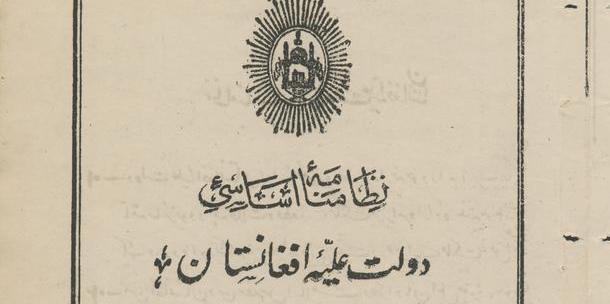 نظامنامهٔ اساسئ
دولت علیّهٔ افغانستان